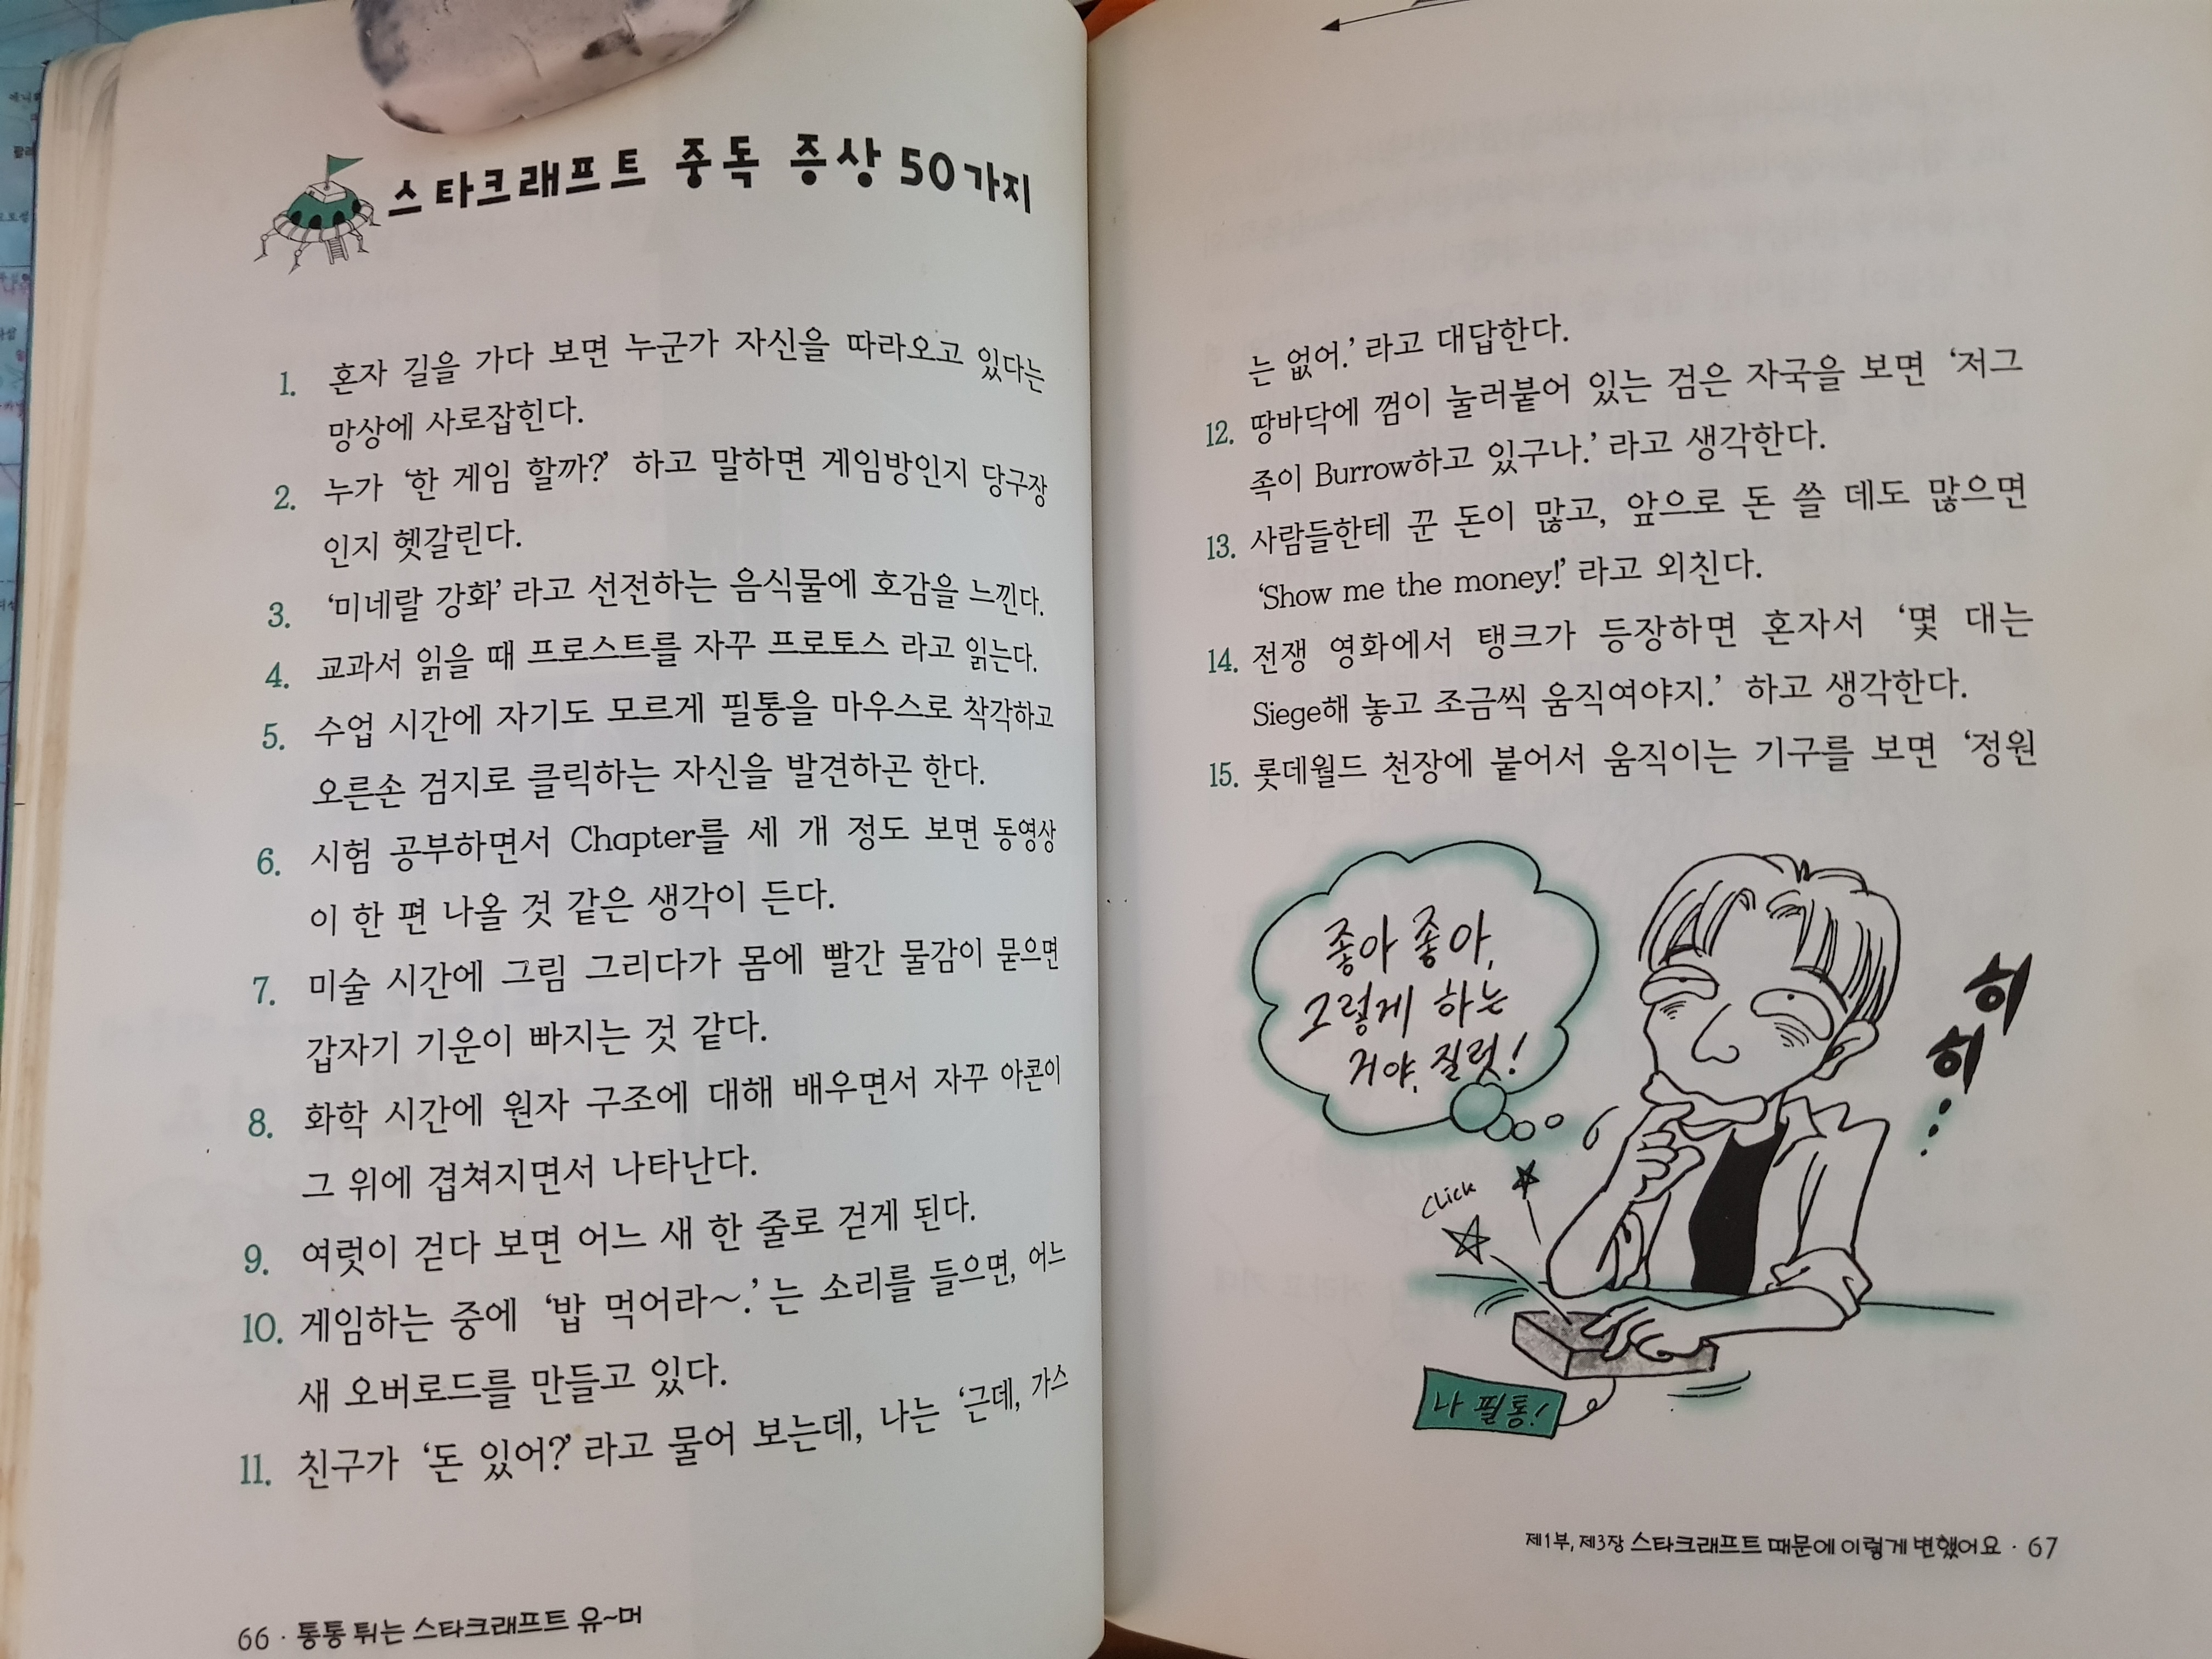 스타크래프트 중독 증상 50가지
1. 혼자 길을 가다 보면 누군가 자신을 따라오고 있다는
망상에 사로잡힌다.
2. 누가 ‘한 게임 할까?’ 하고 말하면 게임방인지 당구장
인지 헷갈린다.
3. ‘미네랄 강화’ 라고 선전하는 음식물에 호감을 느낀다.
4. 교과서 읽을 때 프로스트를 자꾸 프로토스 라고 읽는다.
5. 수업 시간에 자기도 모르게 필통을 마우스로 착각하고
오른손 검지로 클릭하는 자신을 발견하곤 한다.
6. 시험 공부하면서 Chapter를 세 개 정도 보면 동영상
이 한 편 나올 것 같은 생각이 든다.
7. 미술 시간에 그림 그리다가 몸에 빨간 물감이 묻으면
갑자기 기운이 빠지는 것 같다.
8. 화학 시간에 원자 구조에 대해 배우면서 자꾸 아콘이
그 위에 겹쳐지면서 나타난다.
9. 여럿이 걷다 보면 어느 새 한 줄로 걷게 된다.
10. 게임하는 중에 ‘밥 먹어라~.’ 는 소리를 들으면, 어느
새 오버로드를 만들고 있다.
11. 친구가 ‘돈 있어?’ 라고 물어 보는데, 나는 ‘근데, 가스
66 · 통통 튀는 스타크래프트 유~머
는 없어.’ 라고 대답한다.
12. 땅바닥에 껌이 눌러붙어 있는 검은 자국을 보면 ‘저그
족이 Burrow하고 있구나.’ 라고 생각한다.
13. 사람들한테 꾼 돈이 많고, 앞으로 돈 쓸 데도 많으면
‘Show me the money!’ 라고 외친다.
14. 전쟁 영화에서 탱크가 등장하면 혼자서 ‘몇 대는
Siege해 놓고 조금씩 움직여야지.’ 하고 생각한다.
15. 롯데월드 천장에 붙어서 움직이는 기구를 보면 ‘정원
좋아 좋아,
그렇게 하는
거야, 질럿!
히
히
Click
나 필통!
제1부, 제3장 스타크래프트 때문에 이렇게 변했어요 · 67